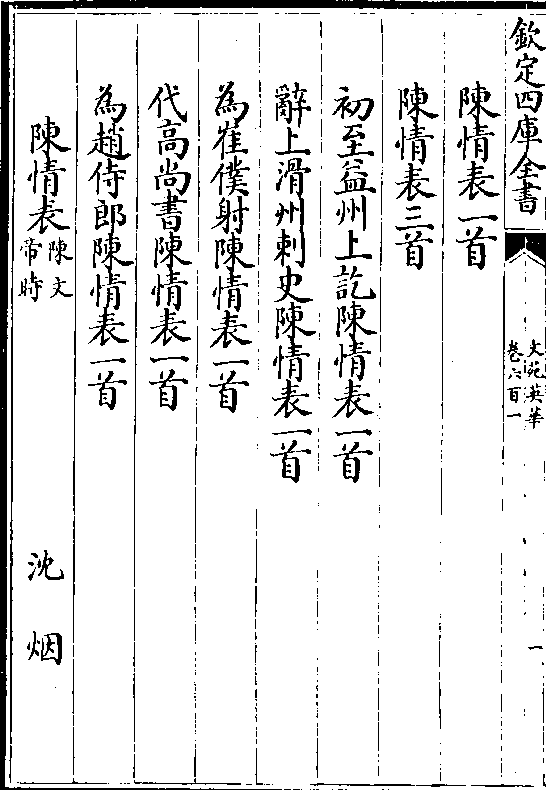 欽定四庫全書
文苑英華
卷六百一
一
陳情表一首
陳情表三首
初至益州上訖陳情表一首
辭上滑州刺史陳情表一首
為崔僕射陳情表一首
代高尚書陳情表一首
為趙侍郎陳情表一首
陳情表陳文帝時 沈烟